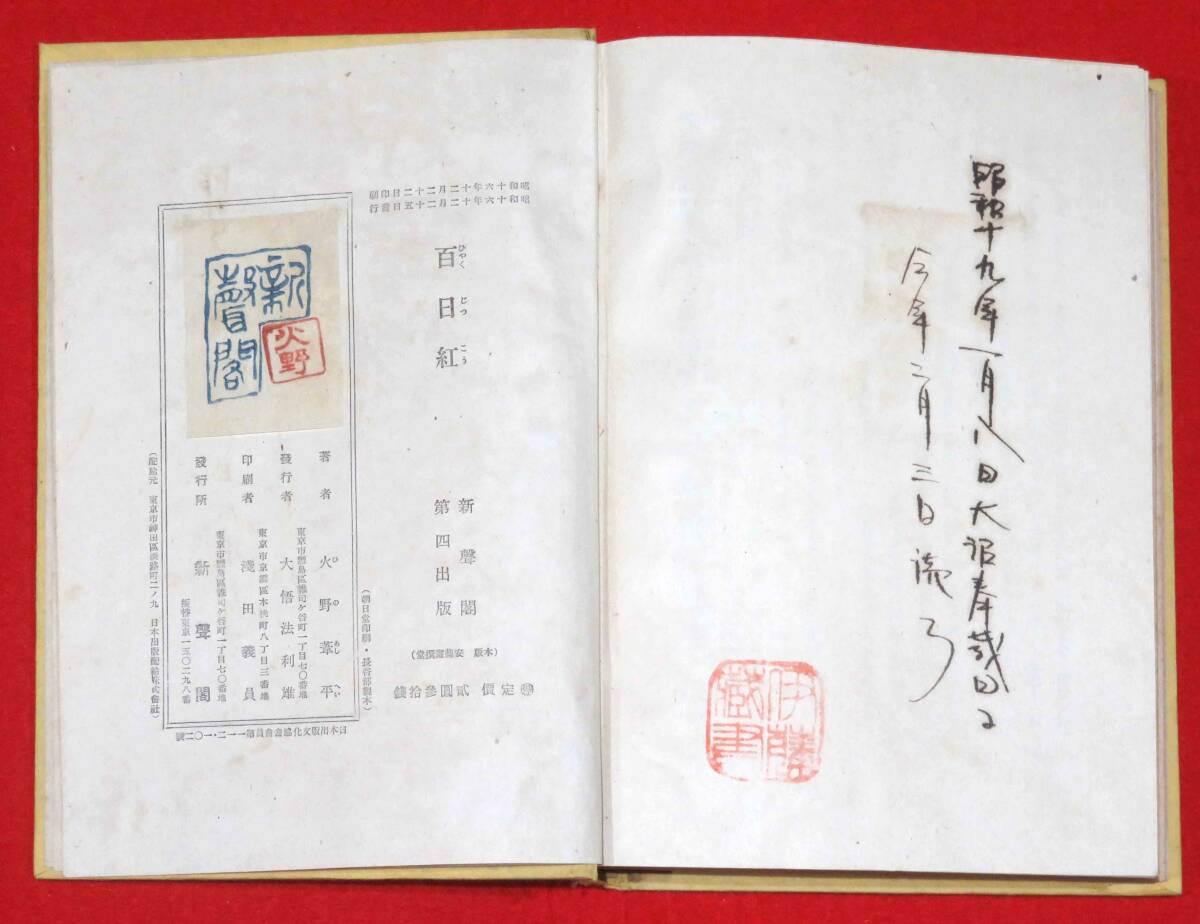 昭和十九年一月八日大詔奉戴日に
今年二月三日読了
伊藤藏書
昭和十六年十二月二十二日印刷
昭和十六年十二月二十五日發行
百日紅
ひやく じつ こう
新聲閣
第四出版
(木版 安藤
定價 貳圓參拾錢
(朝日堂印刷・長谷部製本)
新聲閣
火野
著者 火野葦平
ひ の あし へい
發行者 東京市豐島區雜司ケ谷町一丁目七〇番地
大悟法利雄
印刷者 東京市京橋區木挽町八丁目三番地
淺田義員
發行所 東京市豐島區雜司ケ谷町一丁目七〇番地
新聲閣
振替東京一五〇二九八番
(配給元 東京市神田區淡路町二ノ九 日本出版配給株式會社)
日本出版文化協會會員第一一二・一〇二號